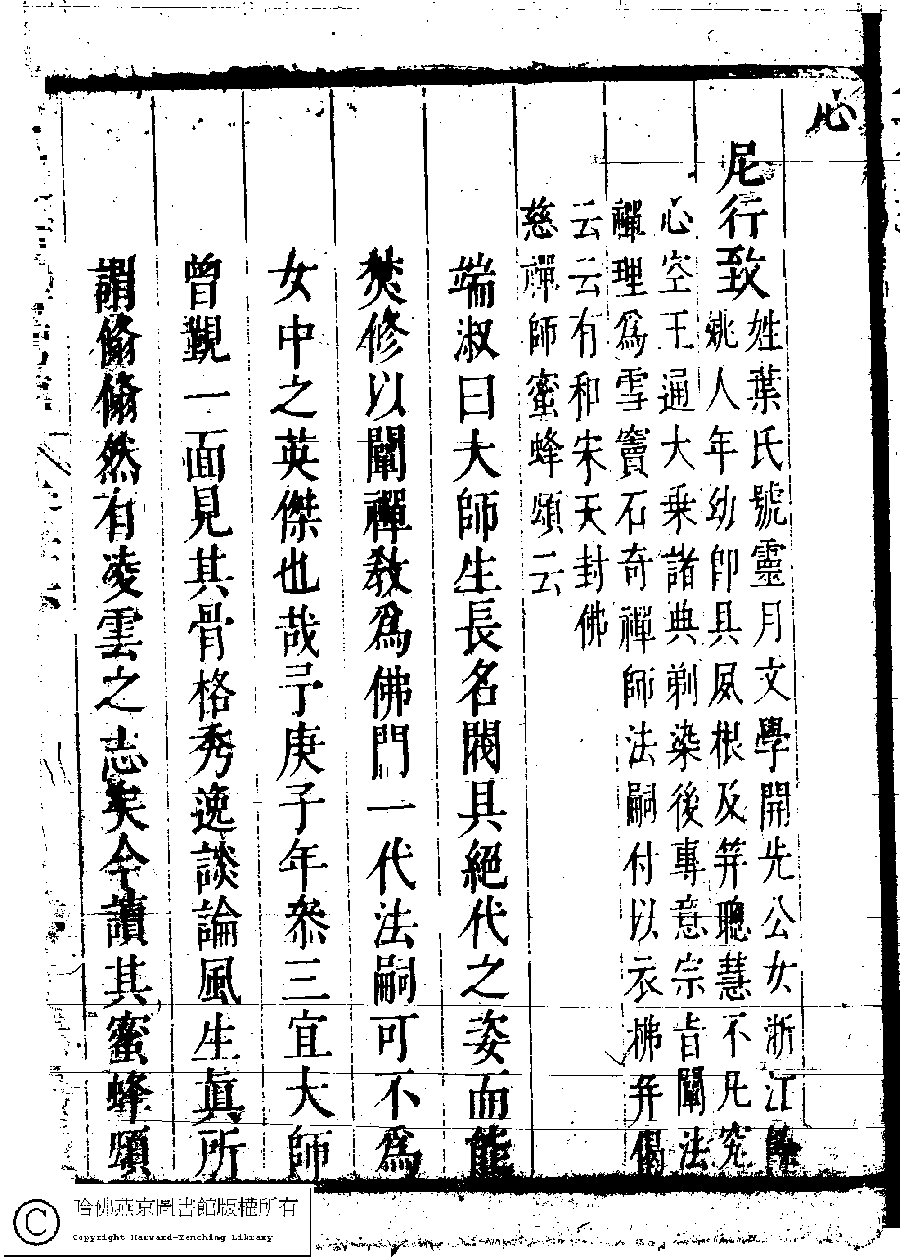 心
尼行致
姓葉氏號靈月文學開先公女浙江餘
姚人年幼即具夙根及笄聰慧不凡究
心空王遍大乗諸典剃染後專意宗旨闡法
禪理爲雪竇石奇禪師法嗣付以衣拂并偈
云云有和宋天封佛
慈禪師蜜蜂頌云
端淑曰大師生長名閥具絕代之姿而能
焚修以闡禪敎爲佛門一代法嗣可不爲
女中之英傑也哉予庚子年叅三宜大師
曾覲一面見其骨格秀逸談論風生眞所
謂翛翛然有凌雲之志矣今讀其蜜蜂頌
哈佛燕京圖書館版權所有
Copyright Harvard-Yenching Library